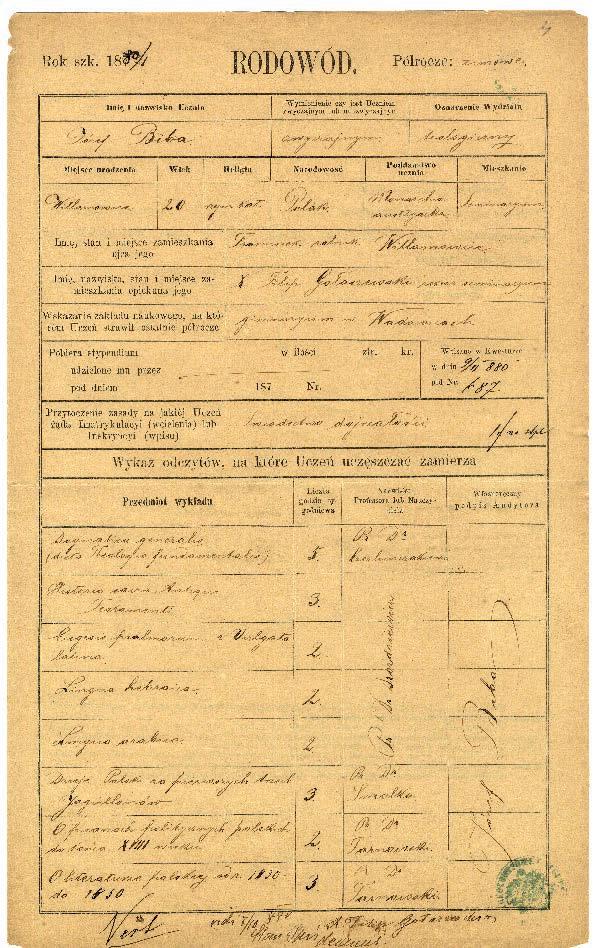 Rok szk. 1880/1 RODOWÓD. Półrocze: zimowe.
Imię i nazwisko Ucznia
Wymienienie czy jest Uczniem zwyczajnym lub nadzwyczajnym
Oznaczenie Wydziału
Józef Biba
zwyczajnym
teologiczny
Miejsce urodzenia Wiek Religia Narodowość Poddaństwo ucznia Mieszkanie
Willamowice 20 rzym. kat. Polak Monarchia austryacka Seminaryum
Imię, stan i miejsce zamieszkania
ojca jego
Franciszek rolnik Willamowice
Imię, nazwisko, stan i miejsce za-
mieszkania opiekuna jego
X Filip Gołaszewski seminaryum
Wskazanie zakładu naukowego, na któ-
rém Uczeń strawił ostatnie półrocze
gimnazyum w Wadowicach
Pobiera stypendium w ilości złr. kr.
udzielone mu przez
pod dniem 187 Nr.
Wpisano w Kwesturze
w dniu 880
pod Nr. 687
Przytoczenie zasady na jakiéj Uczeń
żąda Imatrykulacyi (wcielenia) lub
Inskrypcyi (wpisu)
Świadectwo dojrzałości
Wykaz odczytów, na które Uczeń uczęszczać zamierza
Przedmiot wykładu
Liczba godzin tygodniowa
Nazwisko Profesora lub Nauczyciela
Własnoręczny podpis Audytora
Dogmatica generalis
(dicta Theologia fundamentalis) 5.
X Dr
Historia sacra Antiqui
Testamenti 3.
Exegesis psalmorum e Vulgata
latina. 2.
Lingua hebraica. 2.
Lingua arabica. 2
Dzieje Polski za pierwszych trzech
Jagiellonów 3.
Dr
Smolka
O pismach politycznych polskich
do końca XVIII wieku 2.
Dr
Tarnowski.
O literaturze polskiej od r. 1830-
do 1850 3
Dr
Tarnowski.
Józef Biba